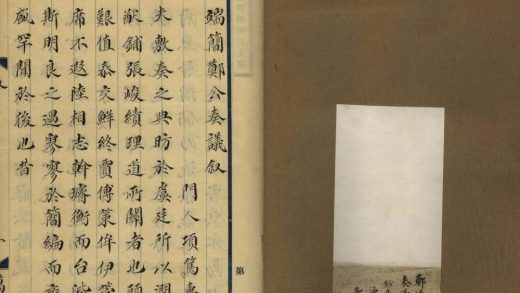 端簡鄭公奏議叙
門人項篤
夫敷奏之典昉於虞廷所以潤
猷鋪張峻績理道所關者也頃
艱值泰交鮮終賈傅策侔伊
席不遐陸相志幹璿衡而台
斯明良之遇寥寥於簡編而
盛罕聞於後也昔
第
鄭
奏